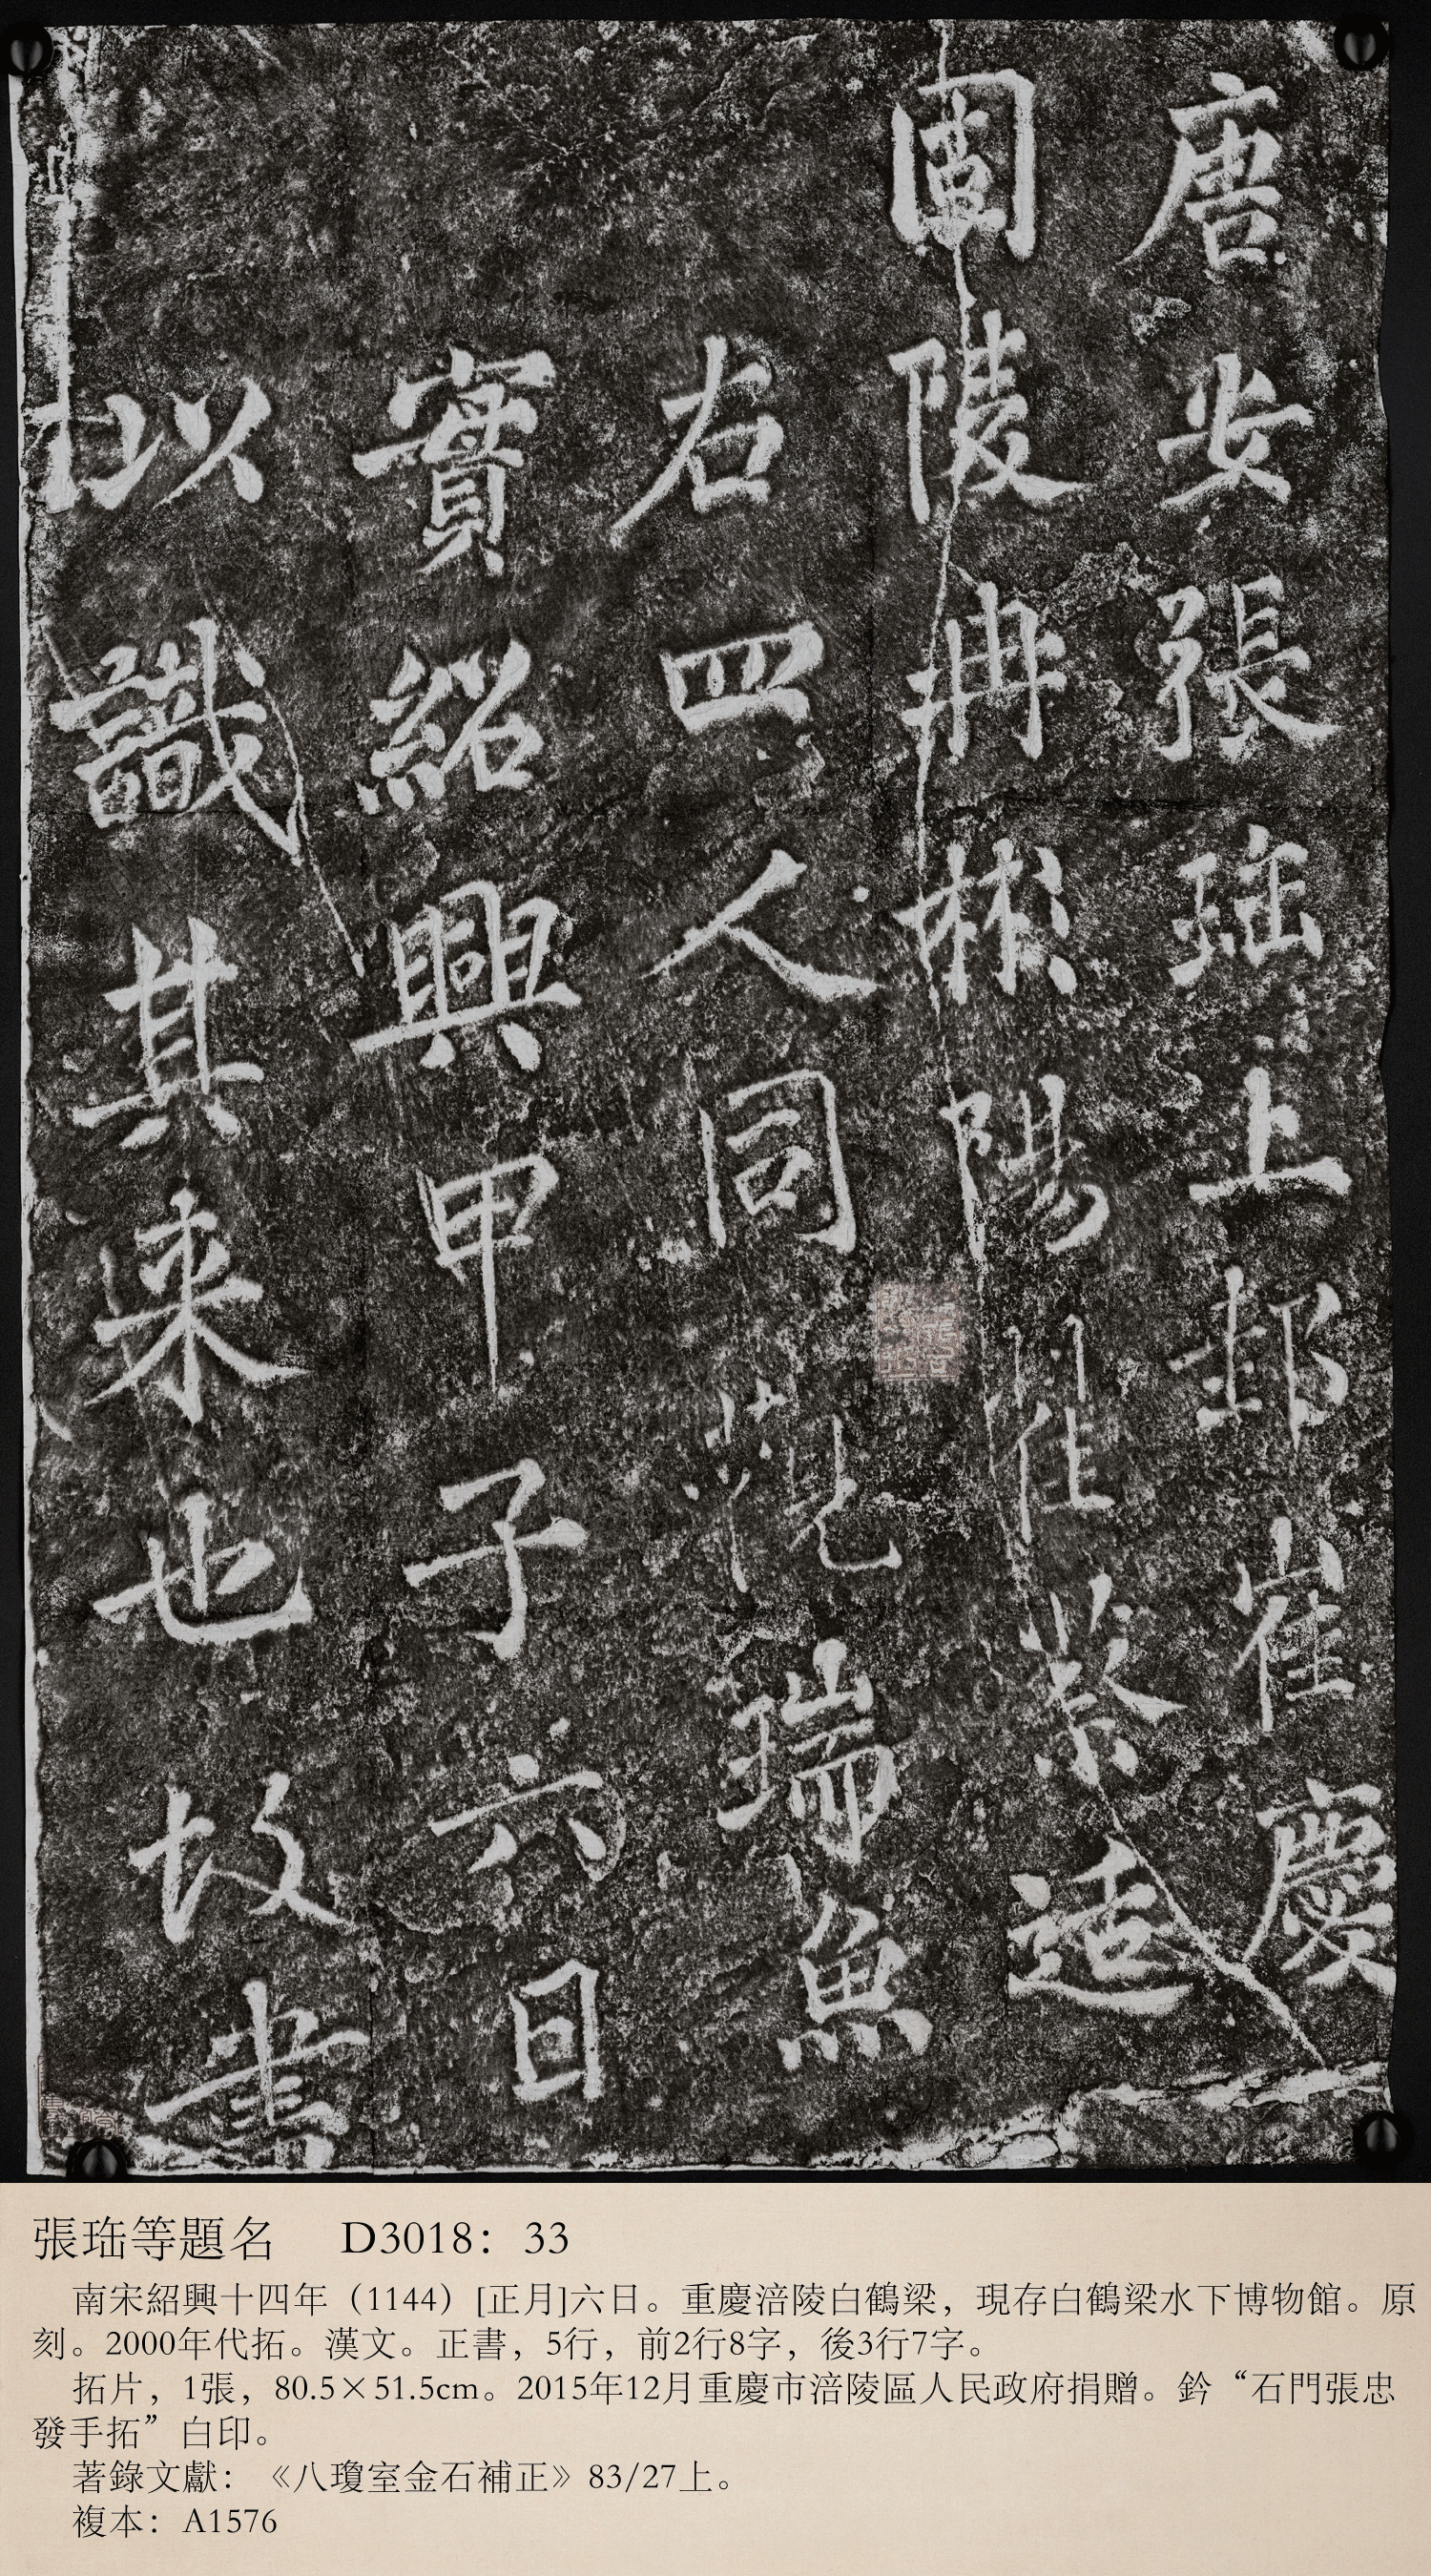 唐安張珤上邽崔慶
陵冉彬陽翟蔡适
右四人同觀瑞魚
實紹興甲子六日
以識其来也故書
張珤等題名 D3018：33
南宋紹興十四年（1144）[正月]六日。重慶涪陵白鶴梁，現存白鶴梁水下博物館。原
刻。2000年代拓。漢文。正書，5行，前2行8字，後3行7字。
拓片，1張，80.5×51.5cm。2015年12月重慶市涪陵區人民政府捐贈。鈐“石門張忠
發手拓”白印。
著錄文獻：《八瓊室金石補正》83/27上。
複本：A1576